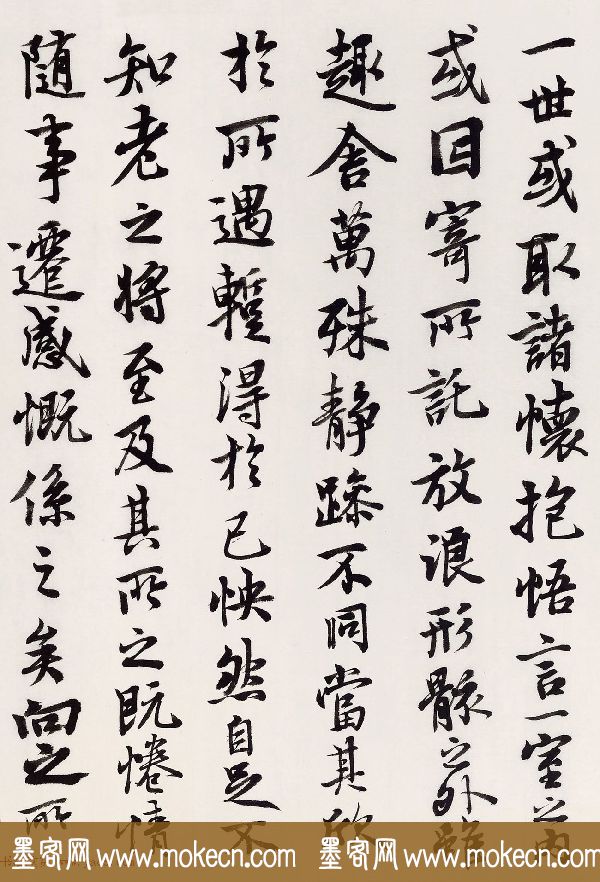 一世或取諸懷抱悟言一室之内
或因寄所託放浪形骸之外雖
趣舍萬殊静躁不同當其欣
於所遇蹔得於己怏然自足不
知老之將至及其所之既惓情
隨事遷感慨係之矣向之所
墨客网 www.mokecn.com 墨客网 www.mokecn.com